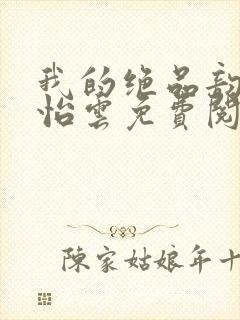 我的绝品
怡雲免費閱
陳家姑娘年十